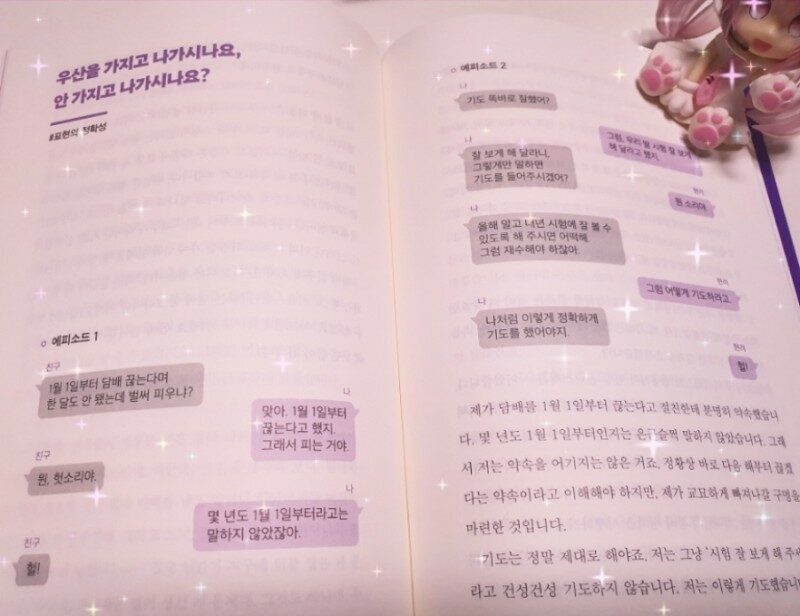 우산을 가지고 나가시나요,
안 가지고 나가시나요?
#표현의 정확성
에피소드 1
친구
1월 1일부터 담배 끊는다며
한 달도 안 됐는데 벌써 피우냐?
나
맞아. 1월 1일부터
끊는다고 했지.
그래서 피는 거야.
친구
뭔, 헛소리야.
나
몇 년도 1월 1일부터라고는
말하지 않았잖아.
친구
헐!
에피소드 2
나
기도 똑바로 잘했어?
현리
그럼, 우리 딸 시험 잘 보게
해 달라고 했지.
나
잘 보게 해 달라니,
그렇게만 말하면
기도를 들어주시겠어?
현리
뭔 소리야.
나
올해 말고 내년 시험에 잘 볼 수
있도록 해 주시면 어떡해.
그럼 재수해야 하잖아.
현리
그럼 어떻게 기도하라고.
나
나처럼 이렇게 정확하게
기도를 했어야지.
현리
헐!
제가 담배를 1월 1일부터 끊는다고 절친한테 분명히 약속했습니
다. 몇 년도 1월 1일부터인지는 은근슬쩍 말하지 않았습니다. 그래
서 저는 약속을 어기지는 않은 거죠. 정황상 바로 다음 해부터 끊겠
다는 약속이라고 이해해야 하지만, 제가 교묘하게 빠져나갈 구멍을
마련한 것입니다.
기도는 정말 제대로 해야죠. 저는 그냥 '시험 잘 보게 해 주세
라고 건성건성 기도하지 않습니다. 저는 이렇게 기도했습니